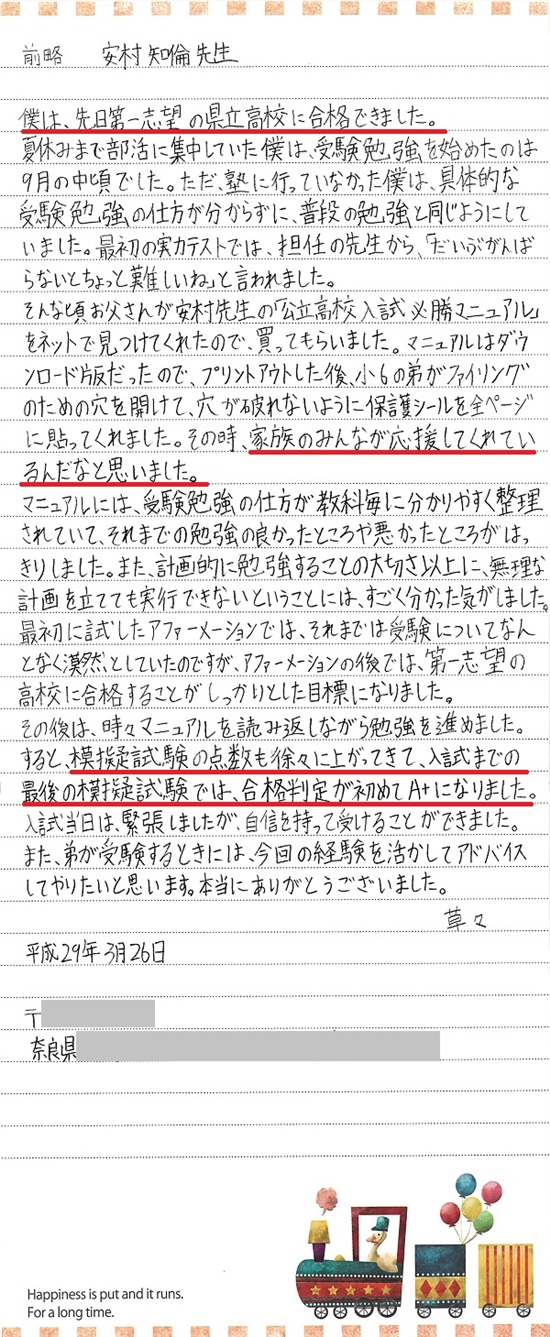 前略　安村知倫先生
僕は、先日第一志望の県立高校に合格できました。
夏休みまで部活に集中していた僕は、受験勉強を始めたのは
9月の中頃でした。ただ、塾に行っていなかった僕は、具体的な
受験勉強の仕方が分からずに、普段の勉強と同じようにして
いました。最初の実力テストでは、担任の先生から、「だいぶがんば
らないとちょっと難しいね」と言われました。
そんな頃お父さんが安村先生の「公立高校入試必勝マニュアル」
をネットで見つけてくれたので、買ってもらいました。マニュアルはダウ
ンロード版だったので、プリントアウトした後、小6の弟がファイリング
のための穴を開けて、穴が破れないように保護シールを全ページ
に貼ってくれました。その時、家族のみんなが応援してくれてい
るんだなと思いました。
マニュアルには、受験勉強の仕方が教科毎に分かりやすく整理
されていて、それまでの勉強の良かったところや悪かったところがはっ
きりしました。また、計画的に勉強することの大切さ以上に、無理な
計画を立てても実行できないということには、すごく分かった気がしました。
最初に試したアファーメーションでは、それまでは受験についてなん
となく漠然としていたのですが、アファーメーションの後では、第一志望の
高校に合格することがしっかりとした目標になりました。
その後は、時々マニュアルを読み返しながら勉強を進めました。
すると、模擬試験の点数も徐々に上がってきて、入試までの
最後の模擬試験では、合格判定が初めてA+になりました。
入試当日は、緊張しましたが、自信を持って受けることができました。
また、弟が受験するときには、今回の経験を活かしてアドバイス
してやりたいと思います。本当にありがとうございました。
草々
平成29年3月26日
〒
奈良県
Happiness is put and it runs.
For a long time.